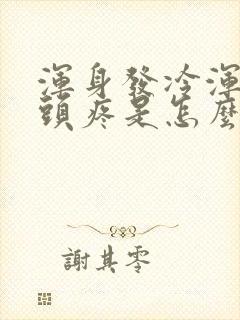 渾身發冷渾
頭疼是怎麼
謝其零